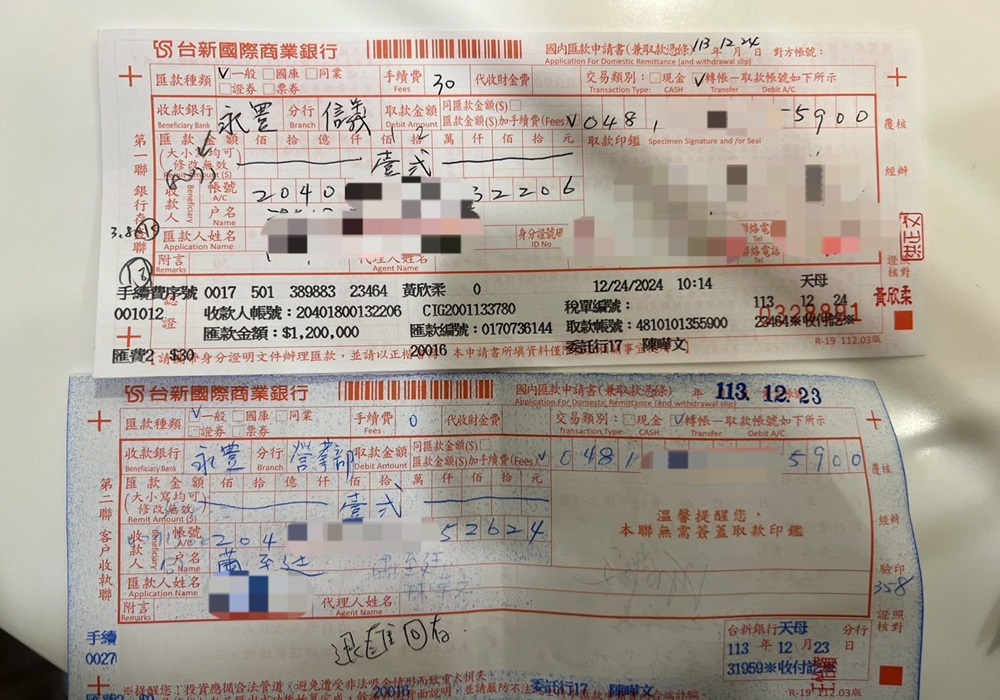 台新國際商業銀行
國內匯款申請書(兼取款憑條) 113年12月24日 對方帳號:
Application For Domestic Remittance (and withdrawal slip)
匯款種類 ✓一般 □國庫 □同業 □證券 □票券 手續費 Fees 30 代收財金費 交易類別: Transaction Type: □現金 CASH ✓轉帳-取款帳號如下所示 Transfer Debit A/C
收款銀行 Beneficiary Bank 永豐 分行 Branch 信義 取款金額 Debit Amount 同匯款金額($)□ 匯款金額($)加手續費(Fees)✓ 048 5900 覆核
匯款金額 佰拾億仟佰拾萬仟佰拾元 取款印鑑 Specimen Signature and /or Seal
(大小寫均可 修改無效) 壹貳
第一聯 銀行存
收款人 Beneficiary 帳號 A/C 2040 32206 經辦
戶名 Name
匯款人姓名 Application Name 身分證號 ID No 聯絡電話 Tel
附言 Remarks 代理人姓名 Agent Name 聯絡電話 Tel 證照核對
手續費序號 0017 501 389883 23464 黃欣柔 0 12/24/2024 10:14 天母 黃欣柔
001012 收款人帳號: 20401800132206 CIG2001133780 稅單編號: 113 12 24
匯款金額: $1,200,000 匯款編號: 0170736144 取款帳號: 4810101355900 23464※收付訖※
0328891
匯費2 $30 20016 委託行17 陳曄文
本申請書所填資料僅
R-19 112.03版
台新國際商業銀行
國內匯款申請書(兼取款憑條) 年 113. 12. 23
Application For Domestic Remittance (and withdrawal slip)
匯款種類 ✓一般 □國庫 □同業 □證券 □票券 手續費 Fees 0 代收財金費 交易類別: Transaction Type: □現金 CASH ✓轉帳-取款帳號如下所示 Transfer Debit A/C
收款銀行 Beneficiary Bank 永豐 分行 Branch 營業部 取款金額 Debit Amount 同匯款金額($)□ 匯款金額($)加手續費(Fees)✓ 0481 5900 覆核
匯款金額 佰拾億仟佰拾萬仟佰拾元
(大小寫均可 修改無效) Remit Amount ($) 壹貳
溫馨提醒您,
本聯無需簽蓋取款印鑑
第二聯 客戶收執聯
收款人 Beneficiary 帳號 A/C 204 52624 經辦
戶名 Name
匯款人姓名 Application Name 驗印 358
附言 Remarks 代理人姓名 Agent Name 證照核對
退匯回存
台新銀行 天母 分行
113 年 12 月 23 日
31959※收付訖
手續
0027
※提醒您!投資應循合法管道,避免遭受非法吸金情形而致重大損失
20016 委託行17 陳曄文
R-19 112.03版